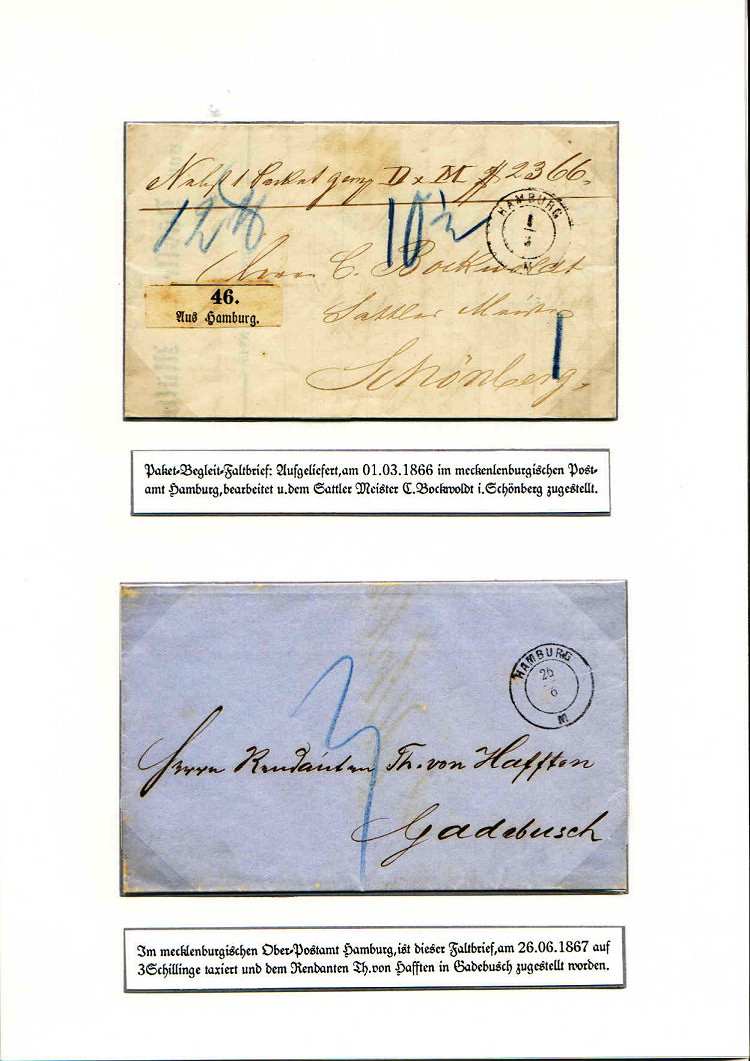 1 Packet gez. D x M # 2366.
12 10½
HAMBURG
1
3
M
Herrn C. Bockwoldt
46.
Aus Hamburg.
Sattler Meister
1
Schönberg.
Paket-Begleit-Faltbrief: Aufgeliefert,am 01.03.1866 im meckenlenburgischen Post-
amt Hamburg,bearbeitet u.dem Sattler Meister C.Bockwoldt i.Schönberg zugestellt.
HAMBURG
26
6
M
3
Herrn Rendanten Th. von Hafften
Gadebusch
Im mecklenburgischen Ober-Postamt Hamburg,ist dieser Faltbrief,am 26.06.1867 auf
3Schillinge taxiert und dem Rendanten Th.von Hafften in Gadebusch zugestellt worden.